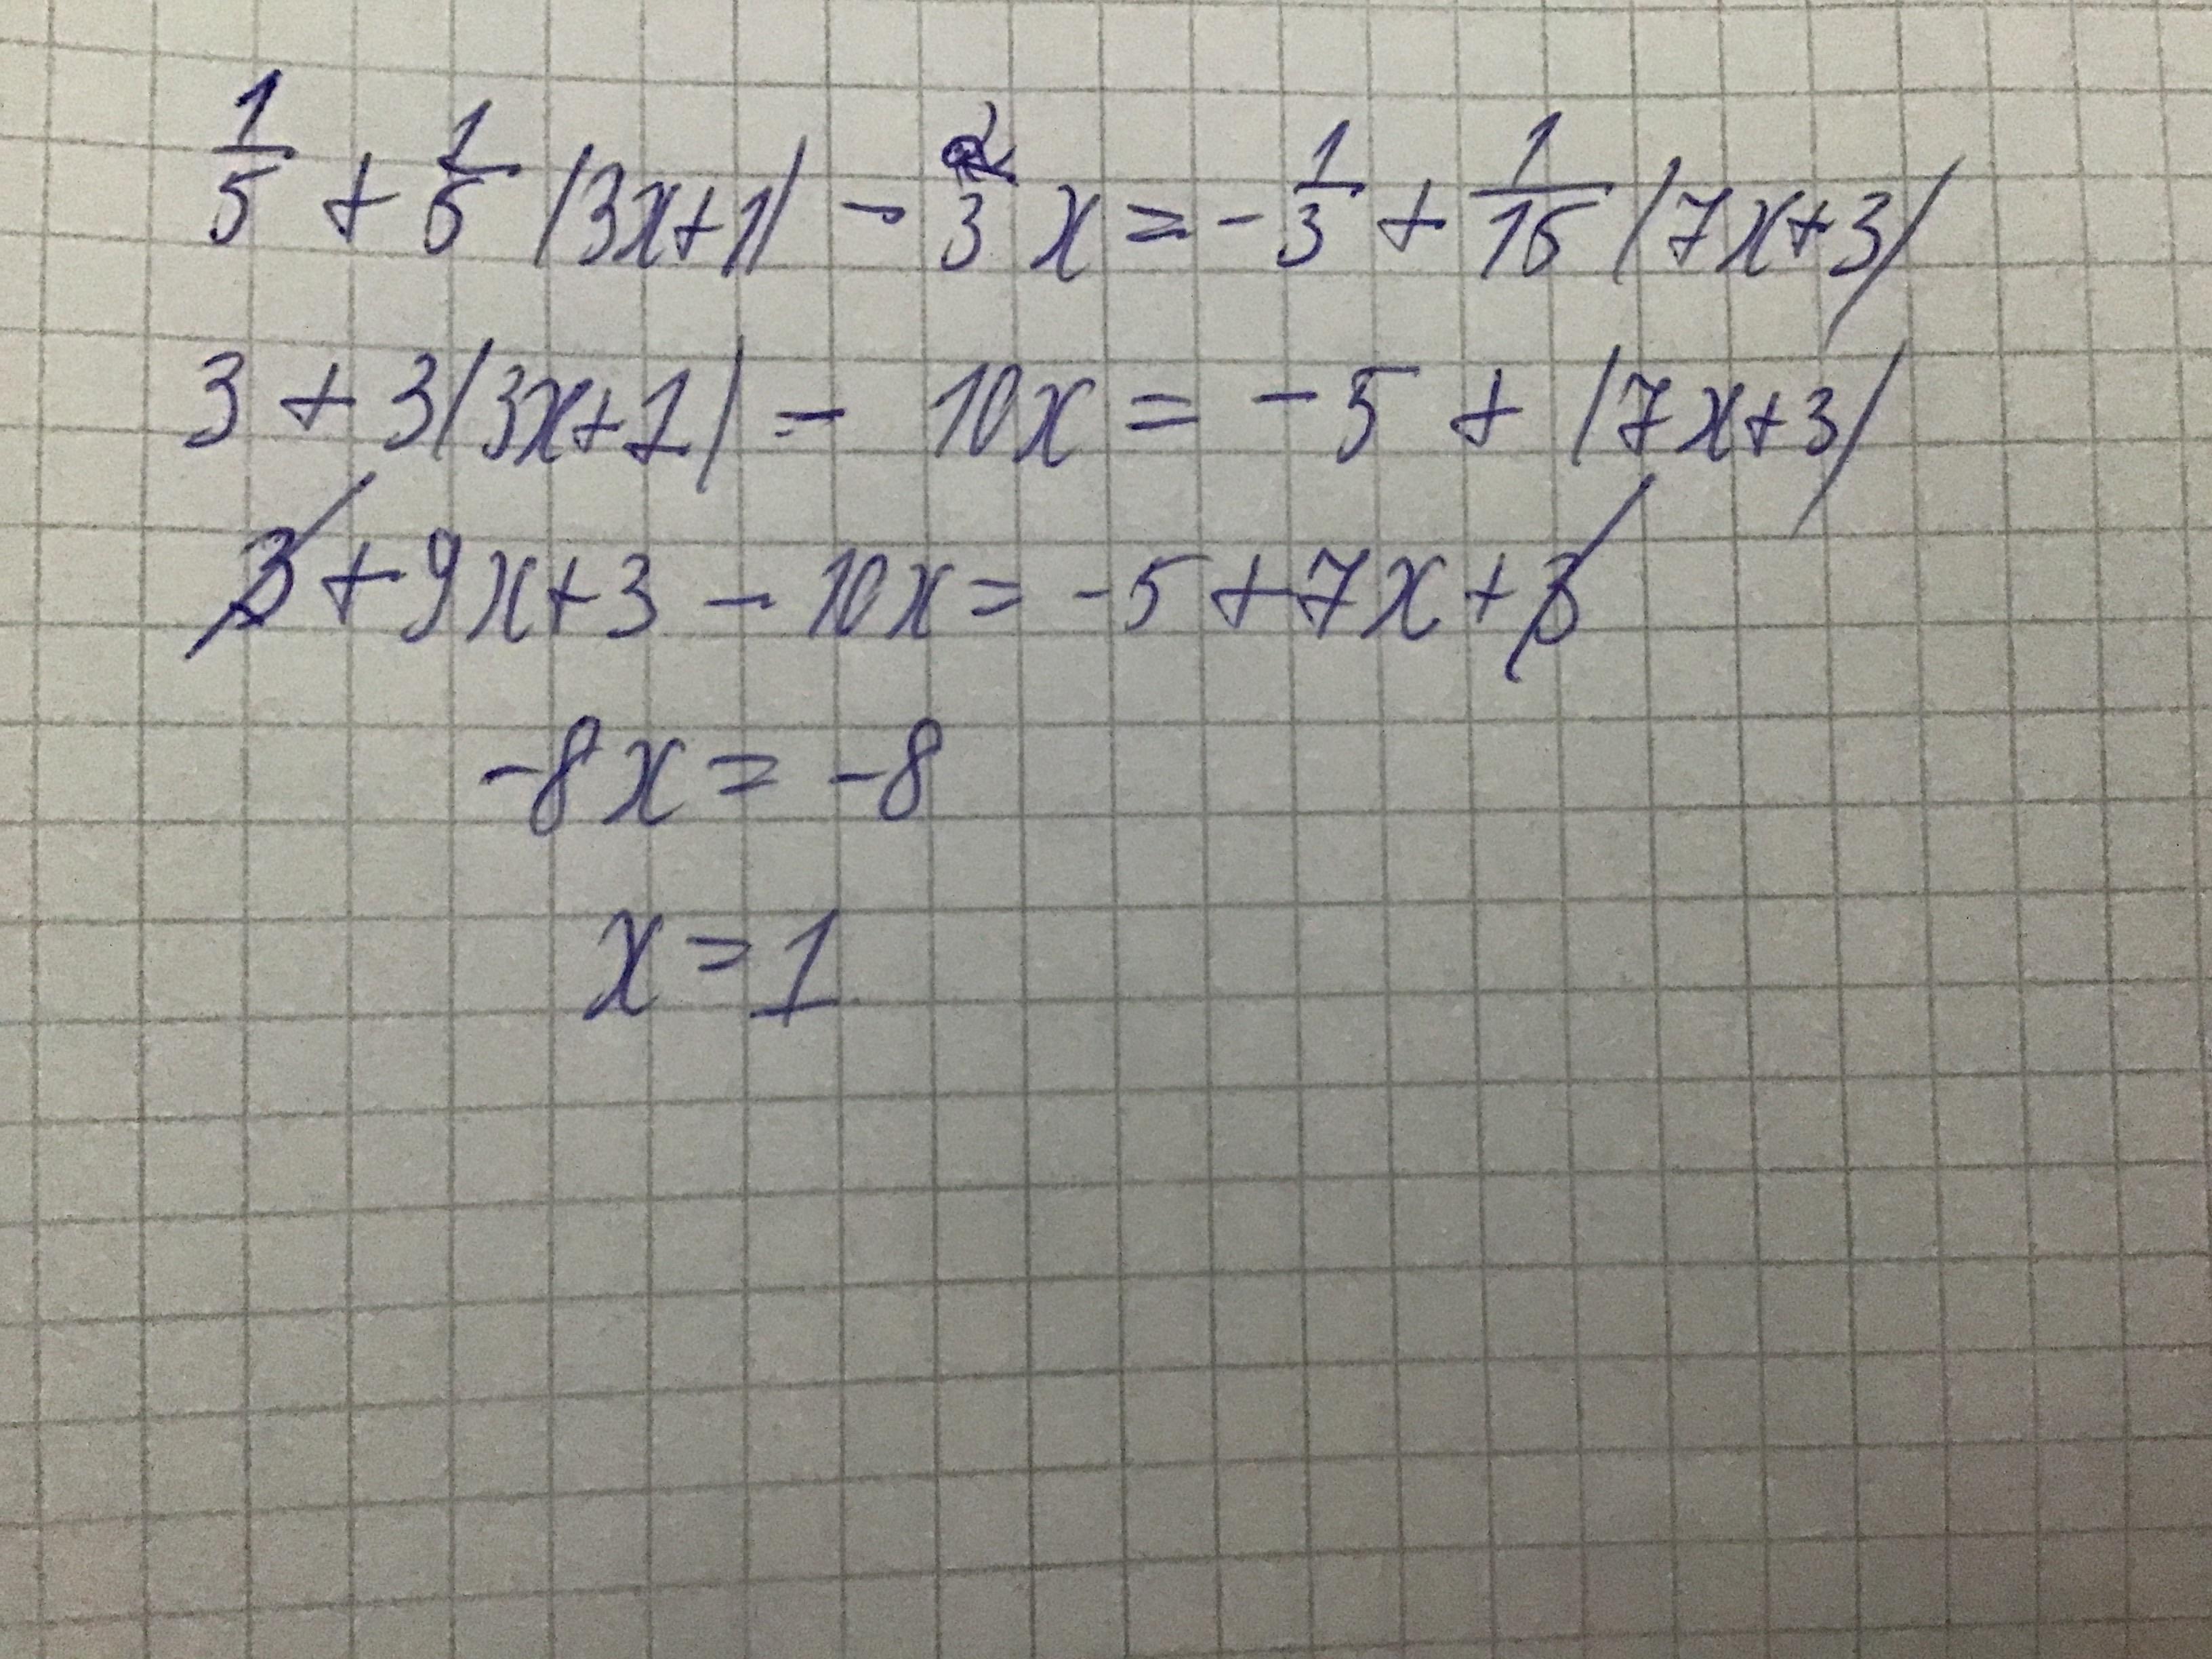 1/5 + 1/5 (3x+1) - 2/3 x = -1/3 + 1/15 (7x+3)
3 + 3(3x+1) - 10x = -5 + (7x+3)
3 + 9x + 3 - 10x = -5 + 7x + 3
-8x = -8
x = 1